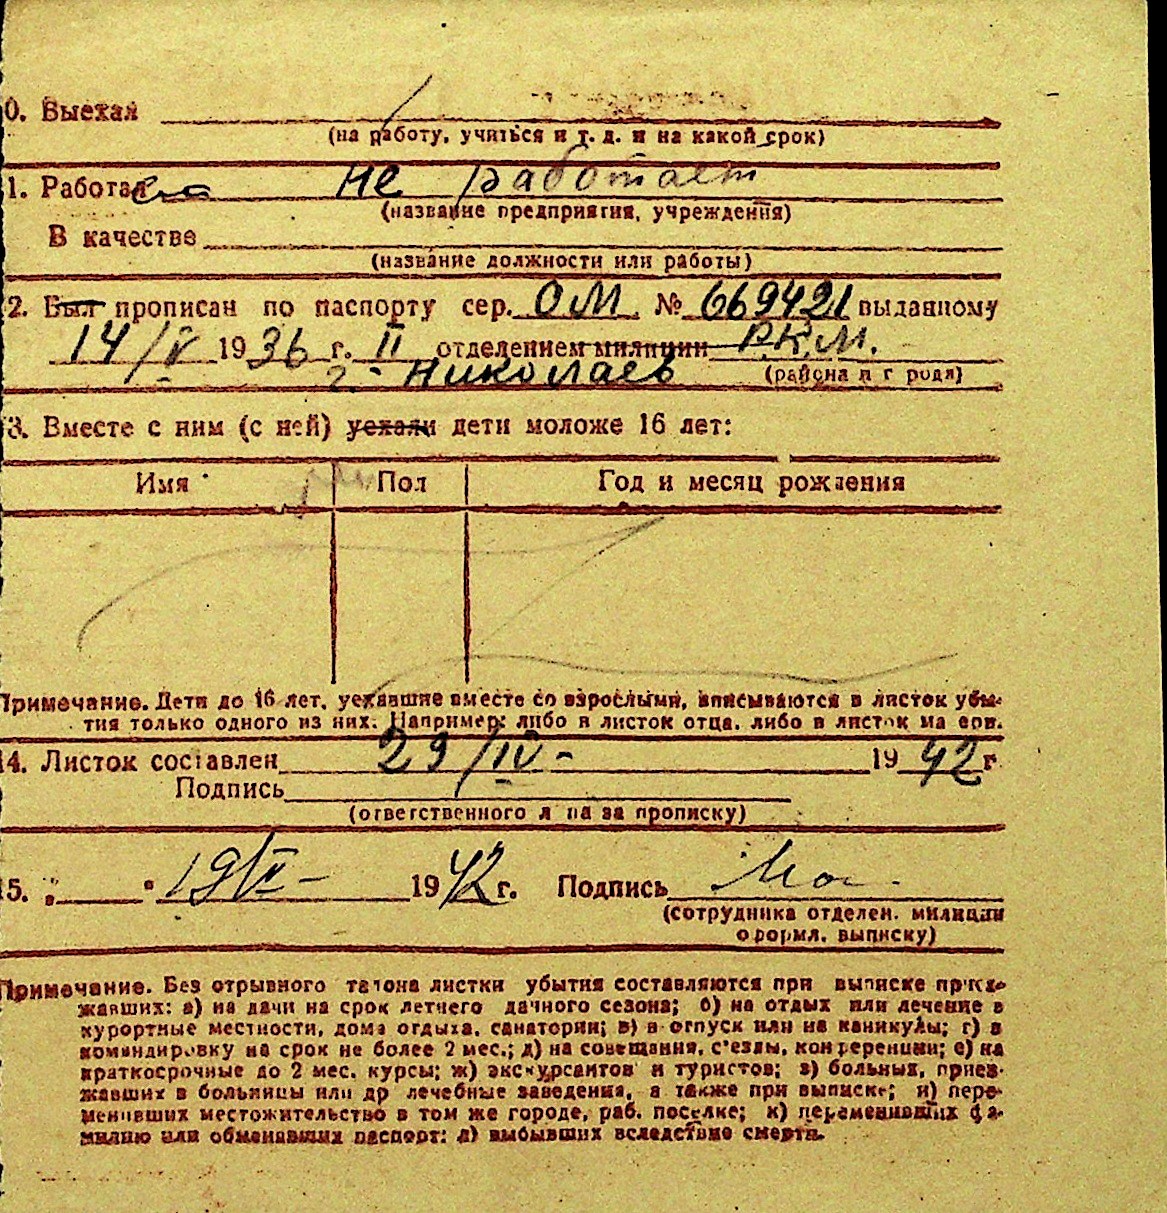 0. Выехал
(на работу, учиться и т. д. и на какой срок)
1. Работал не работает
(название предприятия, учреждения)
В качестве
(название должности или работы)
2. Был прописан по паспорту сер. ОМ № 669421 выданному
14/V 1936 г. II отделением милиции Р.К.М.
г. Николаев (района и г рода)
3. Вместе с ним (с ней) уехали дети моложе 16 лет:
Имя Пол Год и месяц рождения
Примечание. Дети до 16 лет, уехавшие вместе со взрослыми, вписываются в листок убы-
тия только одного из них. Например: либо в листок отца, либо в листок матери.
14. Листок составлен 29/IV- 1942 г
Подпись
(ответственного л ца за прописку)
15. „ " 19/V- 1942 г. Подпись
(сотрудника отделен. милиции
оформл. выписку)
Примечание. Без отрывного талона листки убытия составляются при выписке приез-
жавших: а) на дачи на срок летнего дачного сезона; б) на отдых или лечение в
курортные местности, дома отдыха, санатории; в) в отпуск или на каникулы; г) в
командировку на срок не более 2 мес.; д) на совещания, с'езды, конференции; е) на
краткосрочные до 2 мес. курсы; ж) экскурсантов и туристов; з) больных, приез-
жавших в больницы или др лечебные заведения, а также при выписке; и) пере-
менивших местожительство в том же городе, раб. поселке; к) переменивших фа-
милию или обменявших паспорт; л) выбывших вследствие смерти.